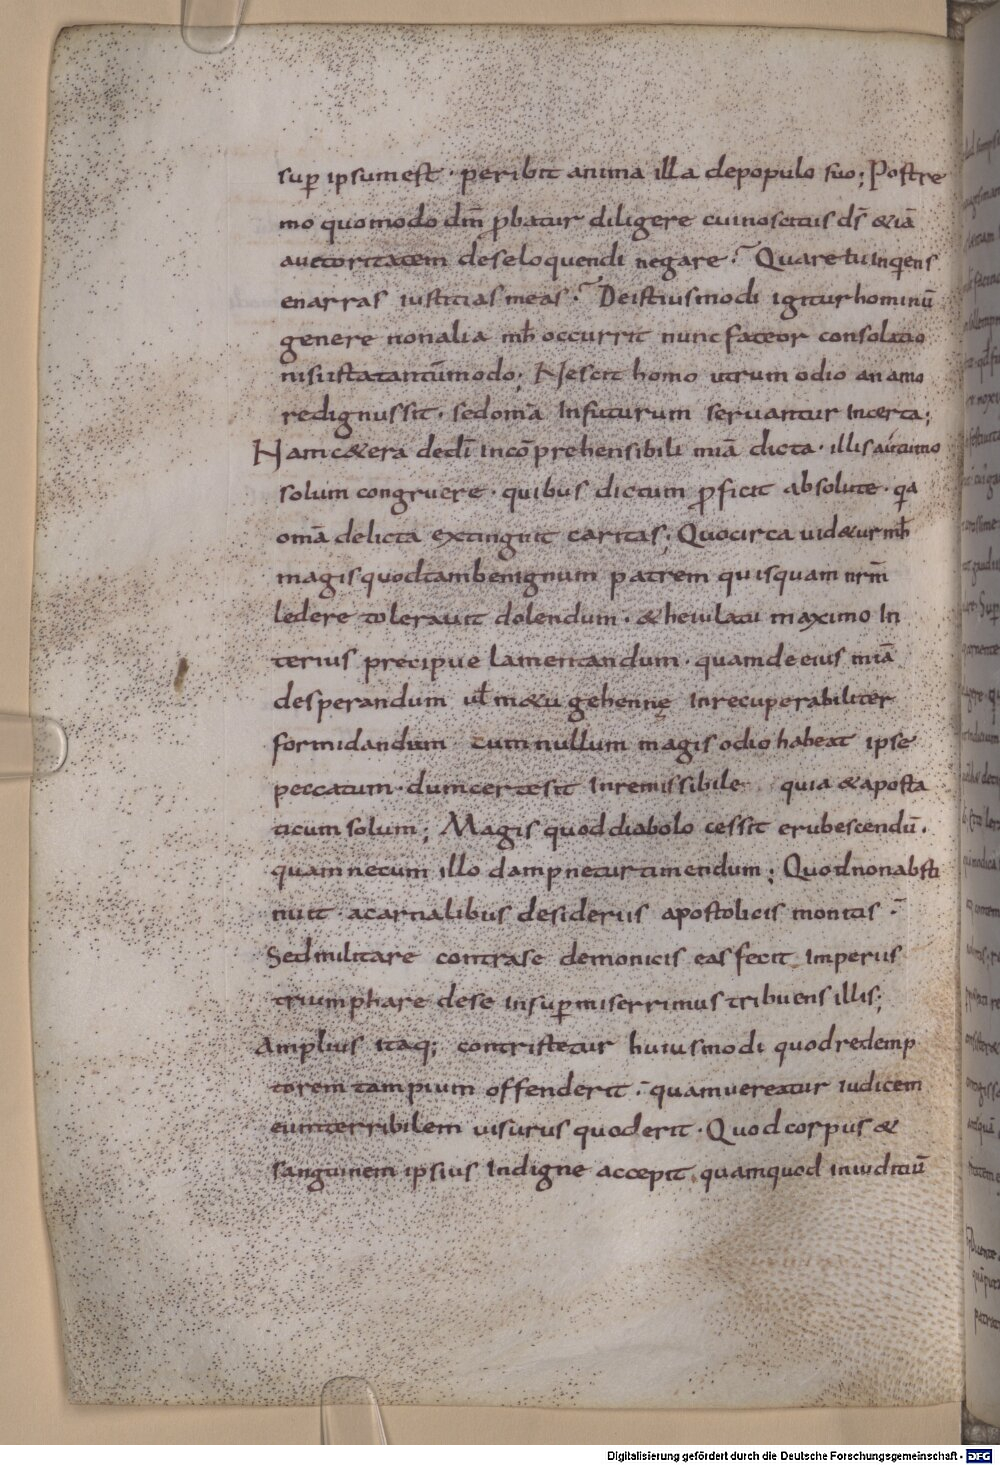 sup̱ ipsum est · peribit anima illa de populo suo; Postre
mo quomodo dm̄ p̱batur diligere cui noscitus ds̄ & iā
auctoritatem de se loquendi negare·̃ Quare tu inq̱ens
enarras iustitias meas·̃ De istiusmodi igitur hominū
genere non alia mh̄ occurrit nunc fateor consolatio
nisi ista tantūmodo; Nescit homo utrum odio an amo
re dignus sit · sed omā in futurum servantur incerta;
Nam c&era de dei incōprehensibili miā dicta · illis autumo
solum congruere · quibus dictum p̱ficit absolute · qa
omā delicta extinguit caritas; Quocirca uid&ur mh̄
magis quod tam benignum patrem quisquam nrm̄
ledere tolerauit dolendum · & heiulatu maximo in
terius precipue lamentandum · quam de eius miā
desperandum ul̄ m&u gehennę inrecuperabiliter
formidandum · cum nullum magis odio habeat ipse
peccatum · dum certe sit inremissibile quia & aposta
ticum solum; Magis quod diabolo cessit erubescendū ·
quam ne cum illo dampnetur timendum; Quod non absti
nuit · a carnalibus desideriis apostolicis monitis ·̃
Sed militare contra se demonicis eas fecit imperiis
triumphare de se insup̱ miserrimus tribuens illis;
Amplius itaq; contristetur huiusmodi quod redemp
torem tam pium offenderit ·̃ quam uereatur iudicem
eum terribilem uisurus quod erit · Quod corpus &
sanguinem ipsius indigne accepit quam quod in iuditiū
Digitalisierung gefördert durch die Deutsche Forschungsgemeinschaft - DFG